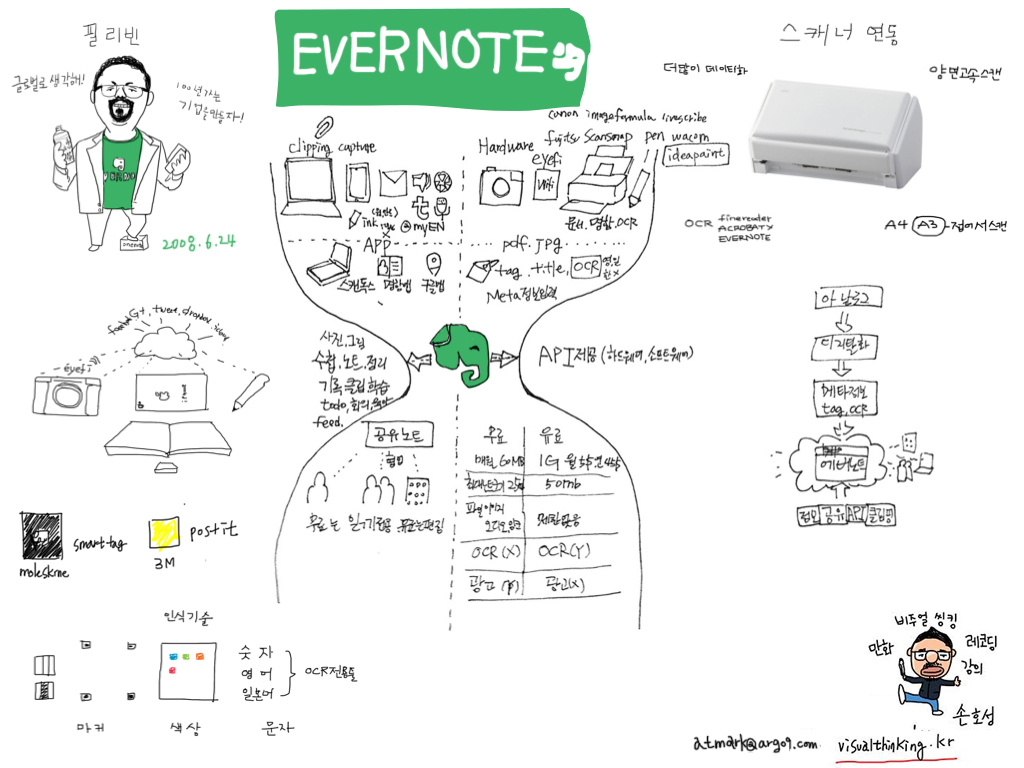 필리빈
글로벌로 생각해!
100년가는
기업을 만들자!
2008.6.24
EVERNOTE
스캐너 연동
더많이 데이터화
양면고속스캔
OCR finereader
ACROBAT X
EVERNOTE
A4 A3-접어서스캔
clipping capture
ink
@myEN
APP
스캔독스 명함앱 구글맵
Hardware
canon imageformula livescribe
fujitsu Scansnap pen wacom
ideapaint
eyefi
Wifi
문서.명함.OCR
pdf.jpg
tag.title,
OCR
Meta정보입력
eyefi
사진,그림
수첩.노트.정리
기록.클립.학습
todo,회의,음악
feed.
API제공(하드웨어,소프트웨어)
공유노트
협업
무료는 읽기전용 유료는편집
무료 유료
매월 60MB 1G
50mb
파일이미지
오디오,잉크 제한없음
OCR(X) OCR(Y)
광고(Y) 광고(X)
아날로그
디지털화
메타정보
tag,ocr
에버노트
공유 API 클리핑
smarttag
moleskine
postit
3M
인식기술
숫자
영어
일본어
OCR전용툴
마커 색상 문자
비주얼 씽킹
만화 레코딩
강의
손호성
atmark@argo9.com
visualthinking.kr